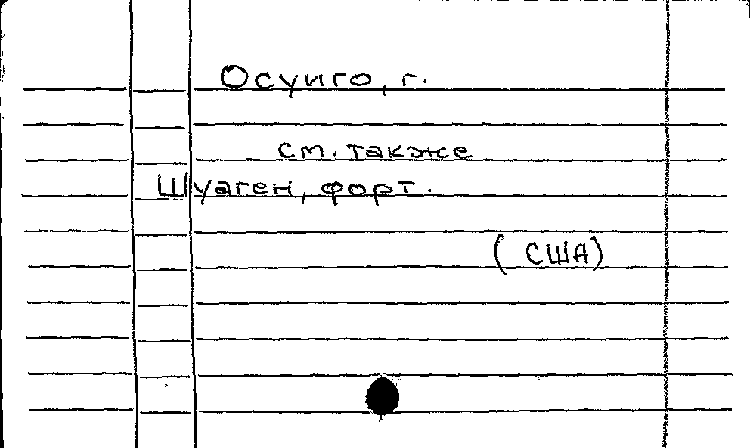 Осуиго, г.
см. также
Шуаген, форт.
(США)